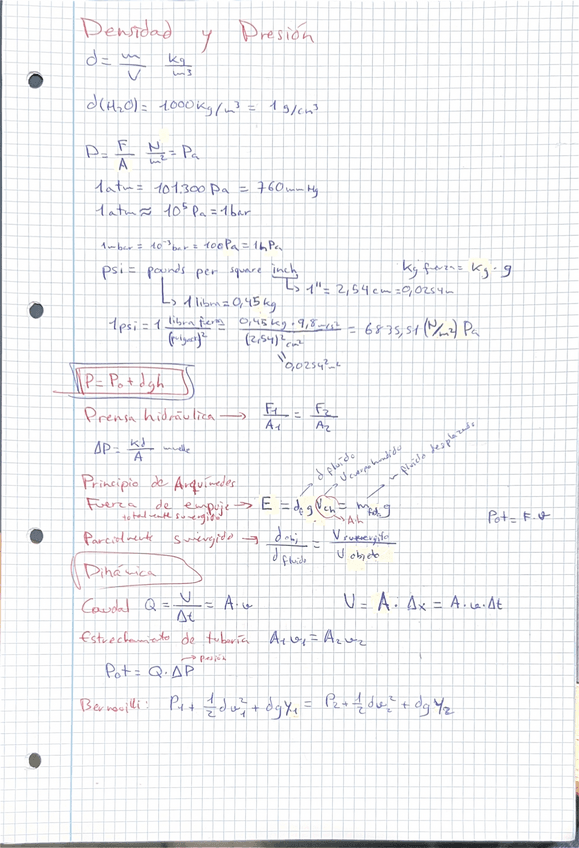 Densidad y Presión
d = m/V kg/m³
d(H₂O) = 1000 kg/m³ = 1 g/cm³
P = F/A N/m² = Pa
1 atm = 101300 Pa = 760 mm Hg
1 atm ≈ 10⁵ Pa = 1 bar
1 mbar = 10⁻³ bar = 100 Pa = 1 hPa
psi = pounds per square inch
kg fuerza = kg · g
↳ 1" = 2,54 cm = 0,0254 m
↳ 1 libra = 0,45 kg
1 psi = 1 libra fuerza/(pulgada)² = 0,45 kg · 9,8 m/s²/(2,54)² cm² = 6835,51 (N/m²) Pa
0,0254² m²
P = P₀ + dgh
Prensa hidráulica → F₁/A₁ = F₂/A₂
ΔP = Kd/A muelle
Principio de Arquímedes
d fluido
V cuerpo hundido
m fluido desplazado
Fuerza de empuje → E = d_f g V_ch = m_fdes g
totalmente sumergido
A·h
Pot = F·v
Parcialmente sumergido → d obj/d fluido = V sumergido/V objeto
Dinámica
Caudal Q = V/Δt = A·v V = A · Δx = A·v·Δt
Estrechamiento de tubería A₁v₁ = A₂v₂
Pot = Q·ΔP → presión
Bernouilli: P₁ + 1/2 dv₁² + dgy₁ = P₂ + 1/2 dv₂² + dgy₂